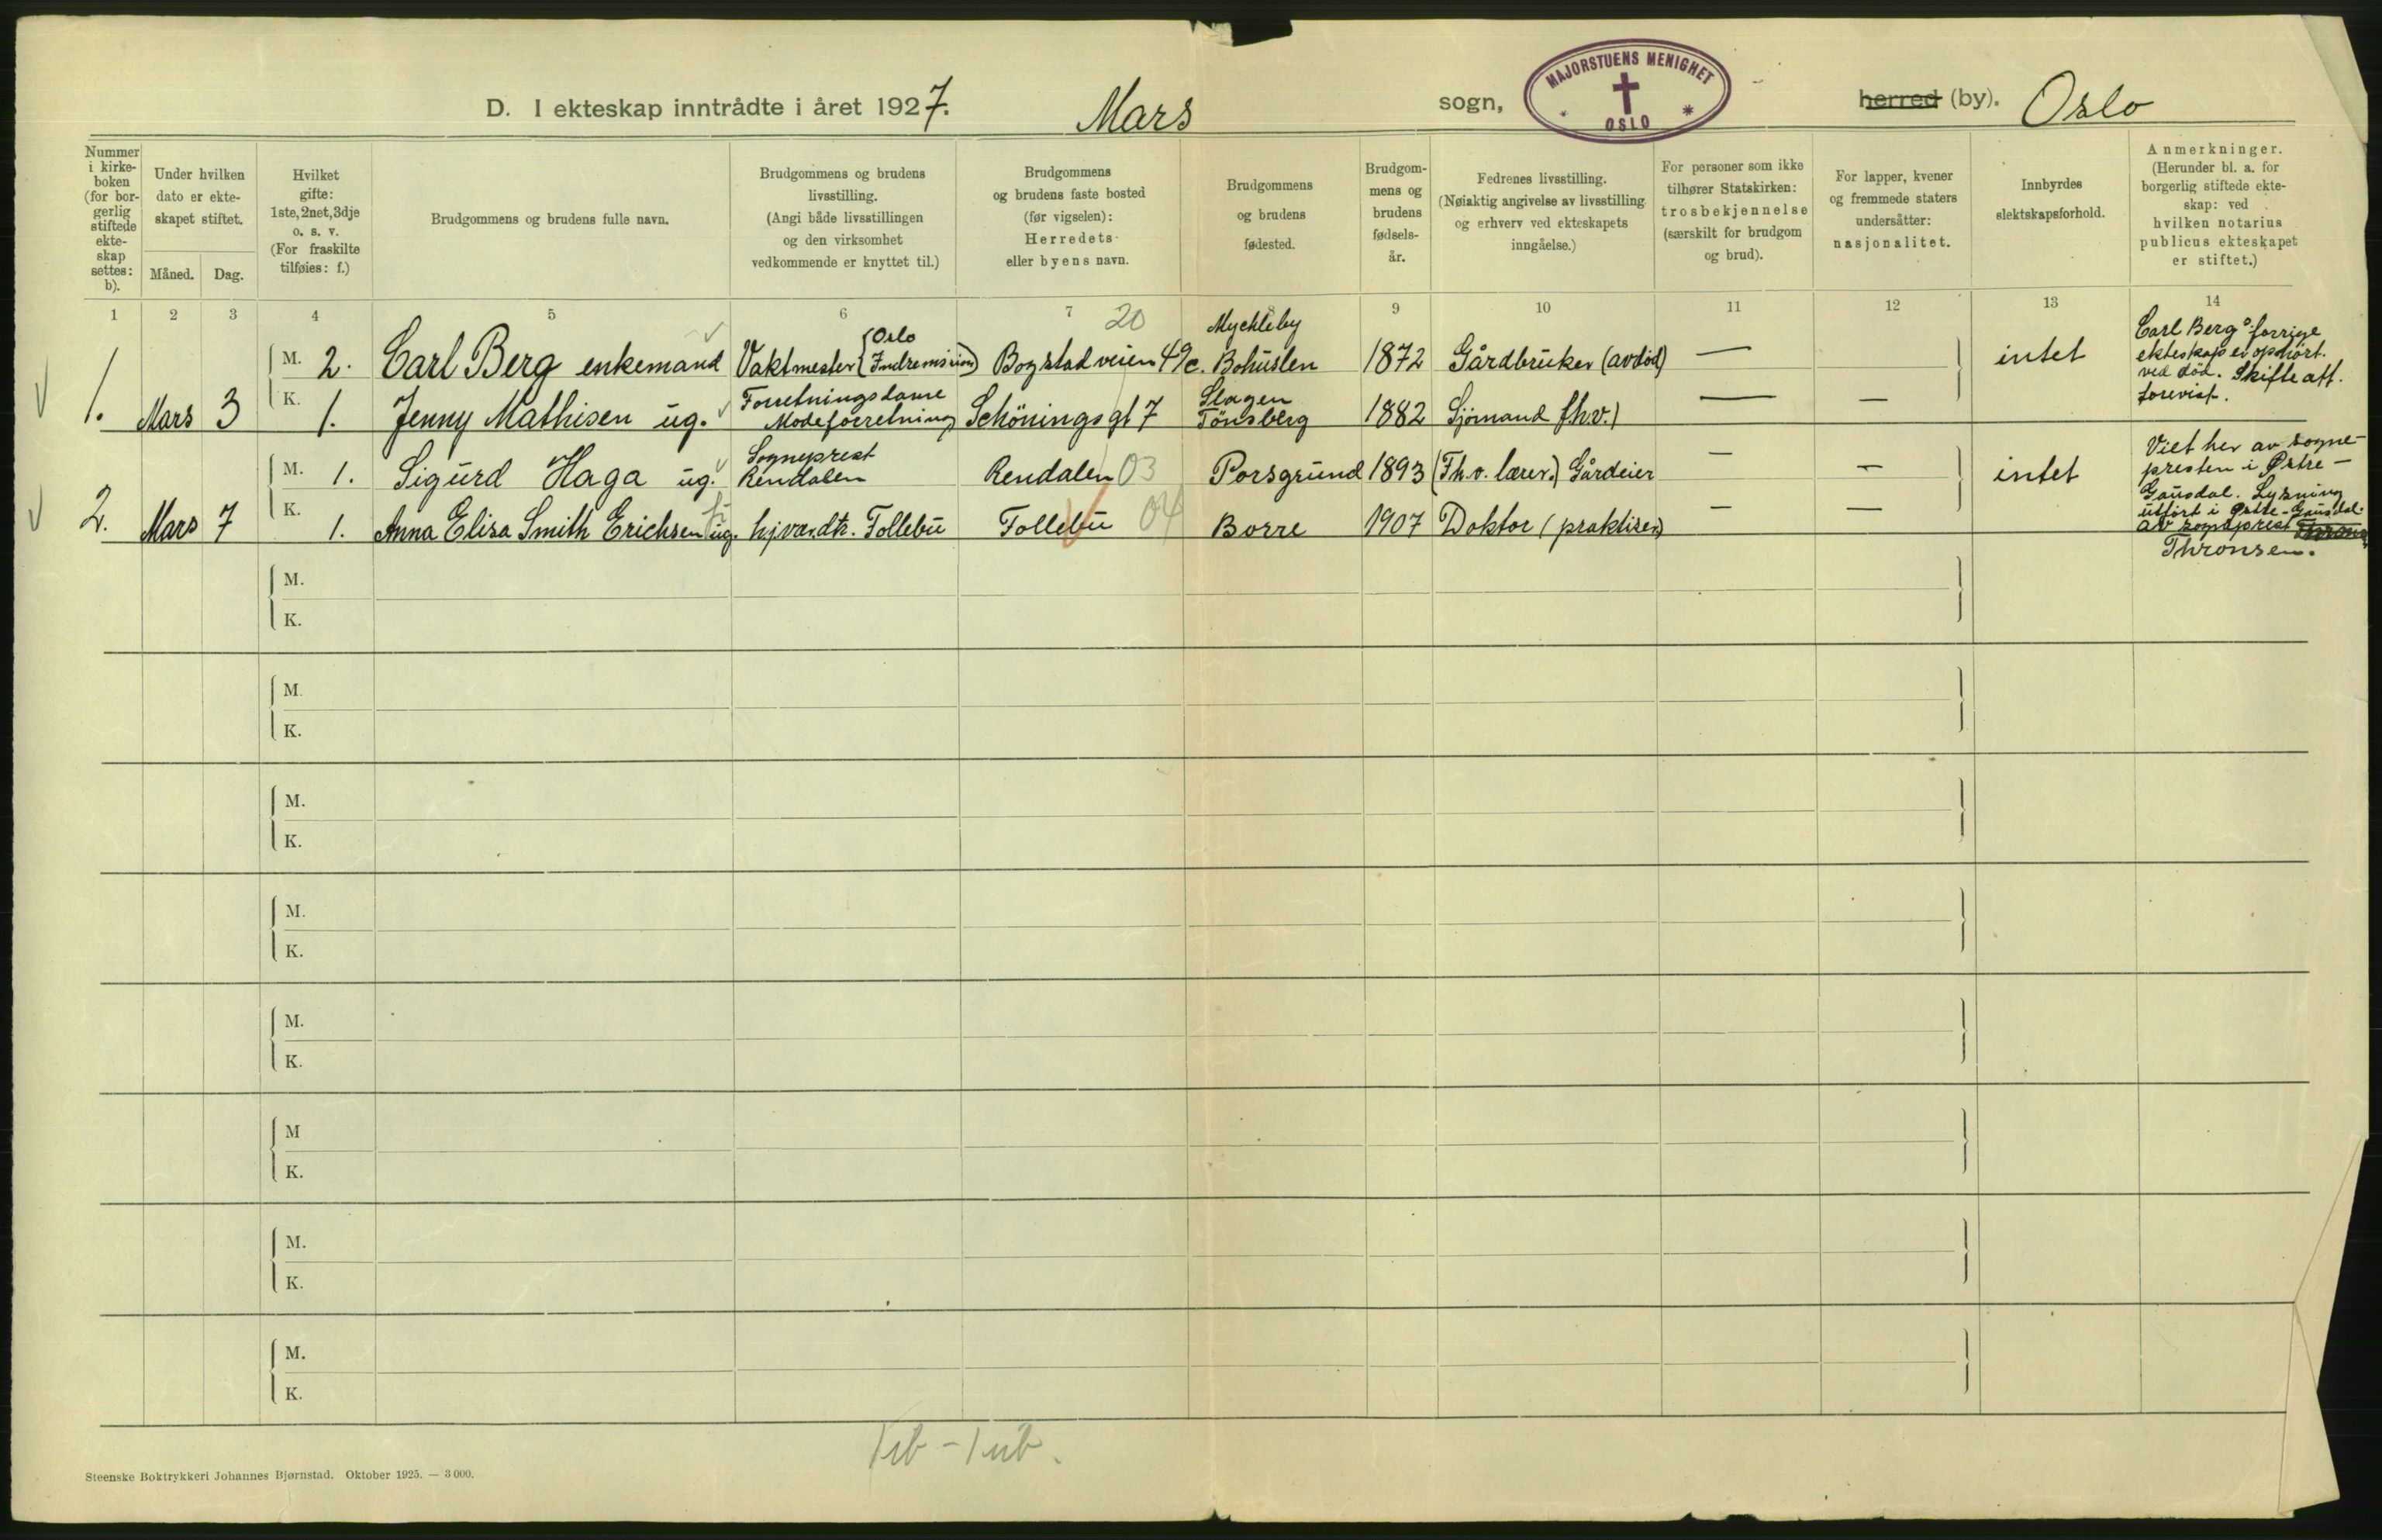 D. I ekteskap inntrådte i året 1927. Mars sogn, MAJORSTUENS MENIGHET OSLO herred (by). Oslo
Nummer i kirkeboken (for borgerlig stiftede ekteskap settes: b).
Under hvilken dato er ekteskapet stiftet.
Måned. Dag.
Hvilket gifte: 1ste, 2net, 3dje o. s. v. (For fraskilte tilføies: f.)
Brudgommens og brudens fulle navn.
Brudgommens og brudens livsstilling. (Angi både livsstillingen og den virksomhet vedkommende er knyttet til.)
Brudgommens og brudens faste bosted (før vigselen): Herredets eller byens navn.
Brudgommens og brudens fødested.
Brudgommens og brudens fødselsår.
Fedrenes livsstilling. (Nøiaktig angivelse av livsstilling og erhverv ved ekteskapets inngåelse.)
For personer som ikke tilhører Statskirken: trosbekjennelse (særskilt for brudgom og brud).
For lapper, kvener og fremmede staters undersåtter: nasjonalitet.
Innbyrdes slektskapsforhold.
Anmerkninger. (Herunder bl. a. for borgerlig stiftede ekteskap: ved hvilken notarius publicus ekteskapet er stiftet.)
1 2 3 4 5 6 7 8 9 10 11 12 13 14
20
M. 2. Carl Berg enkemand Vaktmester (Oslo Indremision) Bogstadveien 49c. Mychleby Bohuslen 1872 Gårdbruker (avdød) — intet
1. Mars 3 K. 1. Jenny Mathisen ug. Forretningsdame Modeforretning Schönings gt 7 Slagen Tönsberg 1882 Sjömand f.h.v.) — —
Carl Bergs forrige
ekteskap er ophört
ved död. Skifte att.
forevist.
M. 1. Sigurd Haga ug. Sogneprest Rendalen Rendalen 03 Porsgrund 1893 (Fh.v. lærer.) Gårdeier — — intet
2. Mars 7 K. 1. Anna Elisa Smith Erichsen ug. hj.vær. dtr. Follebu Follebu 04 Borre 1907 Doktor (praktiser.) — —
Viet her av sogne-
presten i Østre-
Gausdal. Lysning
utfört i Østre-Gausdal
av sogneprest
Thronsen.
M.
K.
M.
K.
M.
K.
M.
K.
M.
K.
M
K.
M.
K.
M.
K.
Steenske Boktrykkeri Johannes Bjørnstad. Oktober 1925. — 3 000.